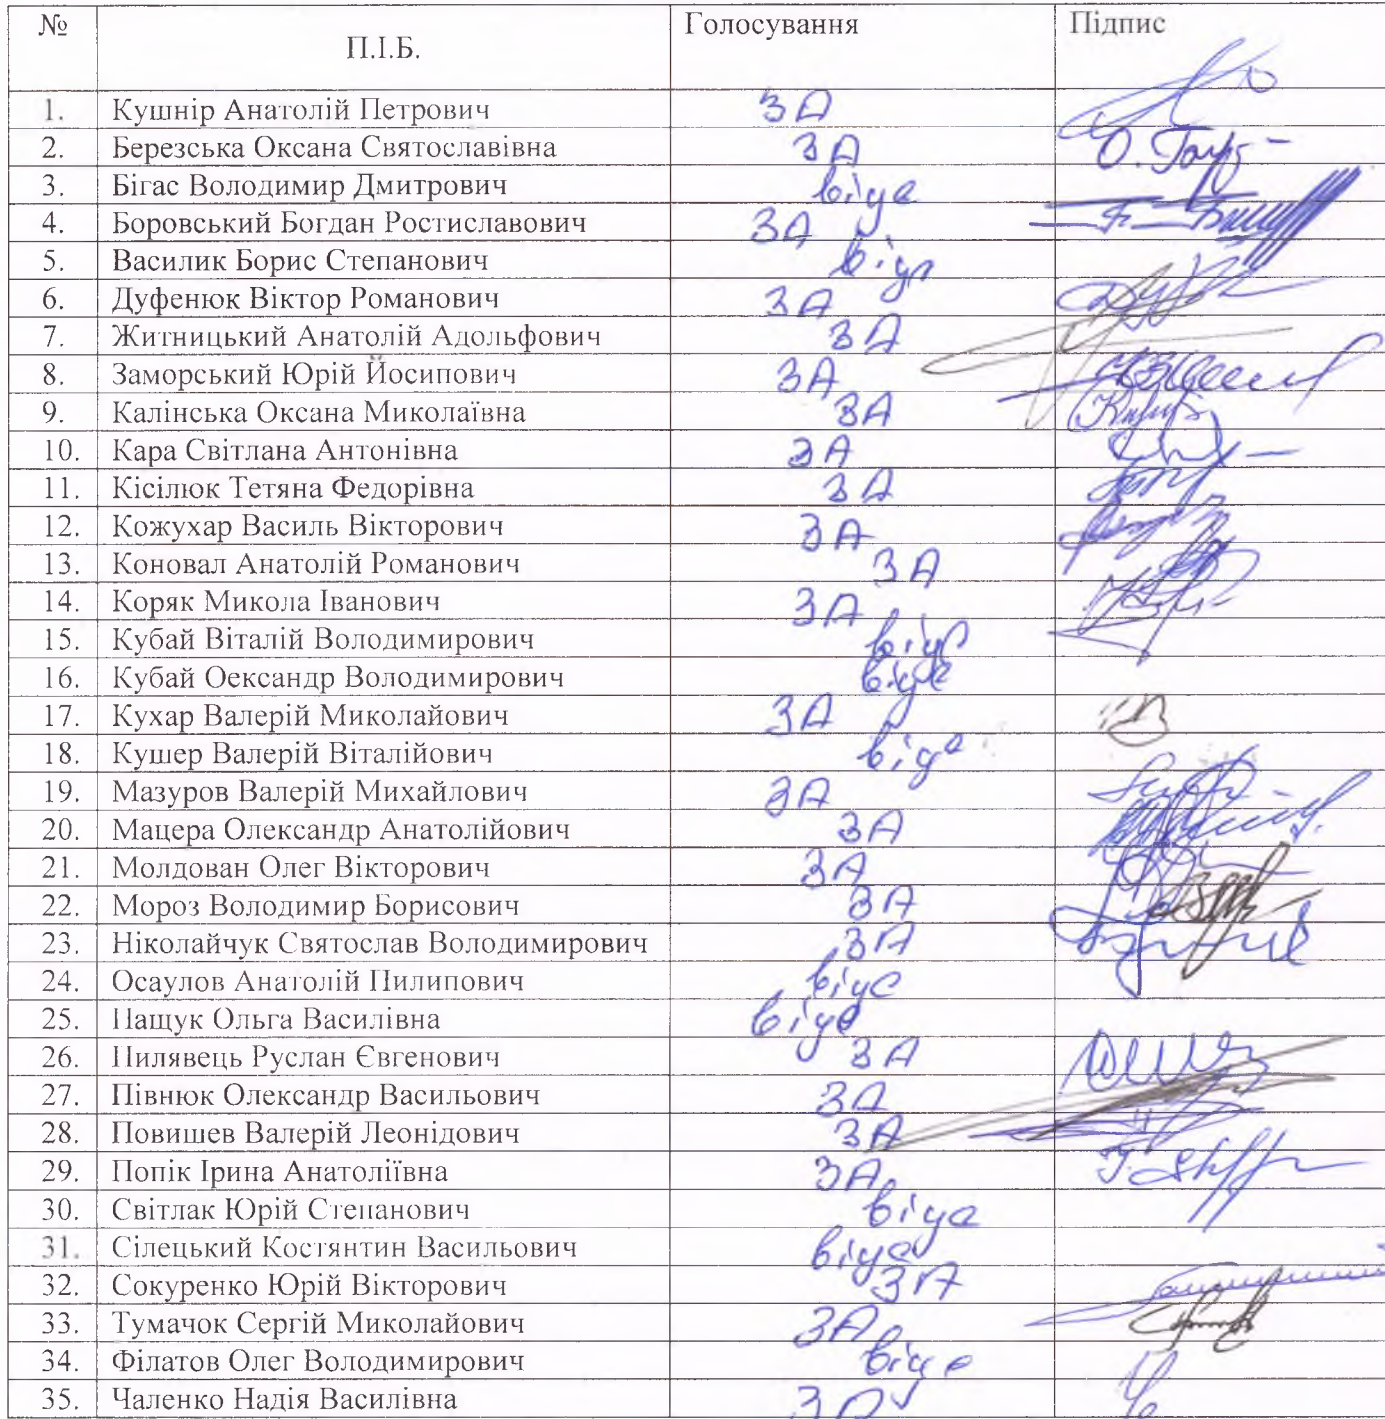 № П.І.Б. Голосування Підпис
1. Кушнір Анатолій Петрович ЗА
2. Березська Оксана Святославівна ЗА
3. Бігас Володимир Дмитрович
4. Боровський Богдан Ростиславович ЗА
5. Василик Борис Степанович
6. Дуфенюк Віктор Романович ЗА
7. Житницький Анатолій Адольфович ЗА
8. Заморський Юрій Йосипович ЗА
9. Калінська Оксана Миколаївна ЗА
10. Кара Світлана Антонівна ЗА
11. Кісілюк Тетяна Федорівна ЗА
12. Кожухар Василь Вікторович ЗА
13. Коновал Анатолій Романович ЗА
14. Коряк Микола Іванович ЗА
15. Кубай Віталій Володимирович
16. Кубай Оександр Володимирович
17. Кухар Валерій Миколайович ЗА
18. Кушер Валерій Віталійович
19. Мазуров Валерій Михайлович ЗА
20. Мацера Олександр Анатолійович ЗА
21. Молдован Олег Вікторович ЗА
22. Мороз Володимир Борисович ЗА
23. Ніколайчук Святослав Володимирович ЗА
24. Осаулов Анатолій Пилипович
25. Пащук Ольга Василівна
26. Пилявець Руслан Євгенович ЗА
27. Півнюк Олександр Васильович ЗА
28. Повишев Валерій Леонідович ЗА
29. Попік Ірина Анатоліївна ЗА
30. Світлак Юрій Степанович
31. Сілецький Костянтин Васильович
32. Сокуренко Юрій Вікторович ЗА
33. Тумачок Сергій Миколайович ЗА
34. Філатов Олег Володимирович
35. Чаленко Надія Василівна ЗА